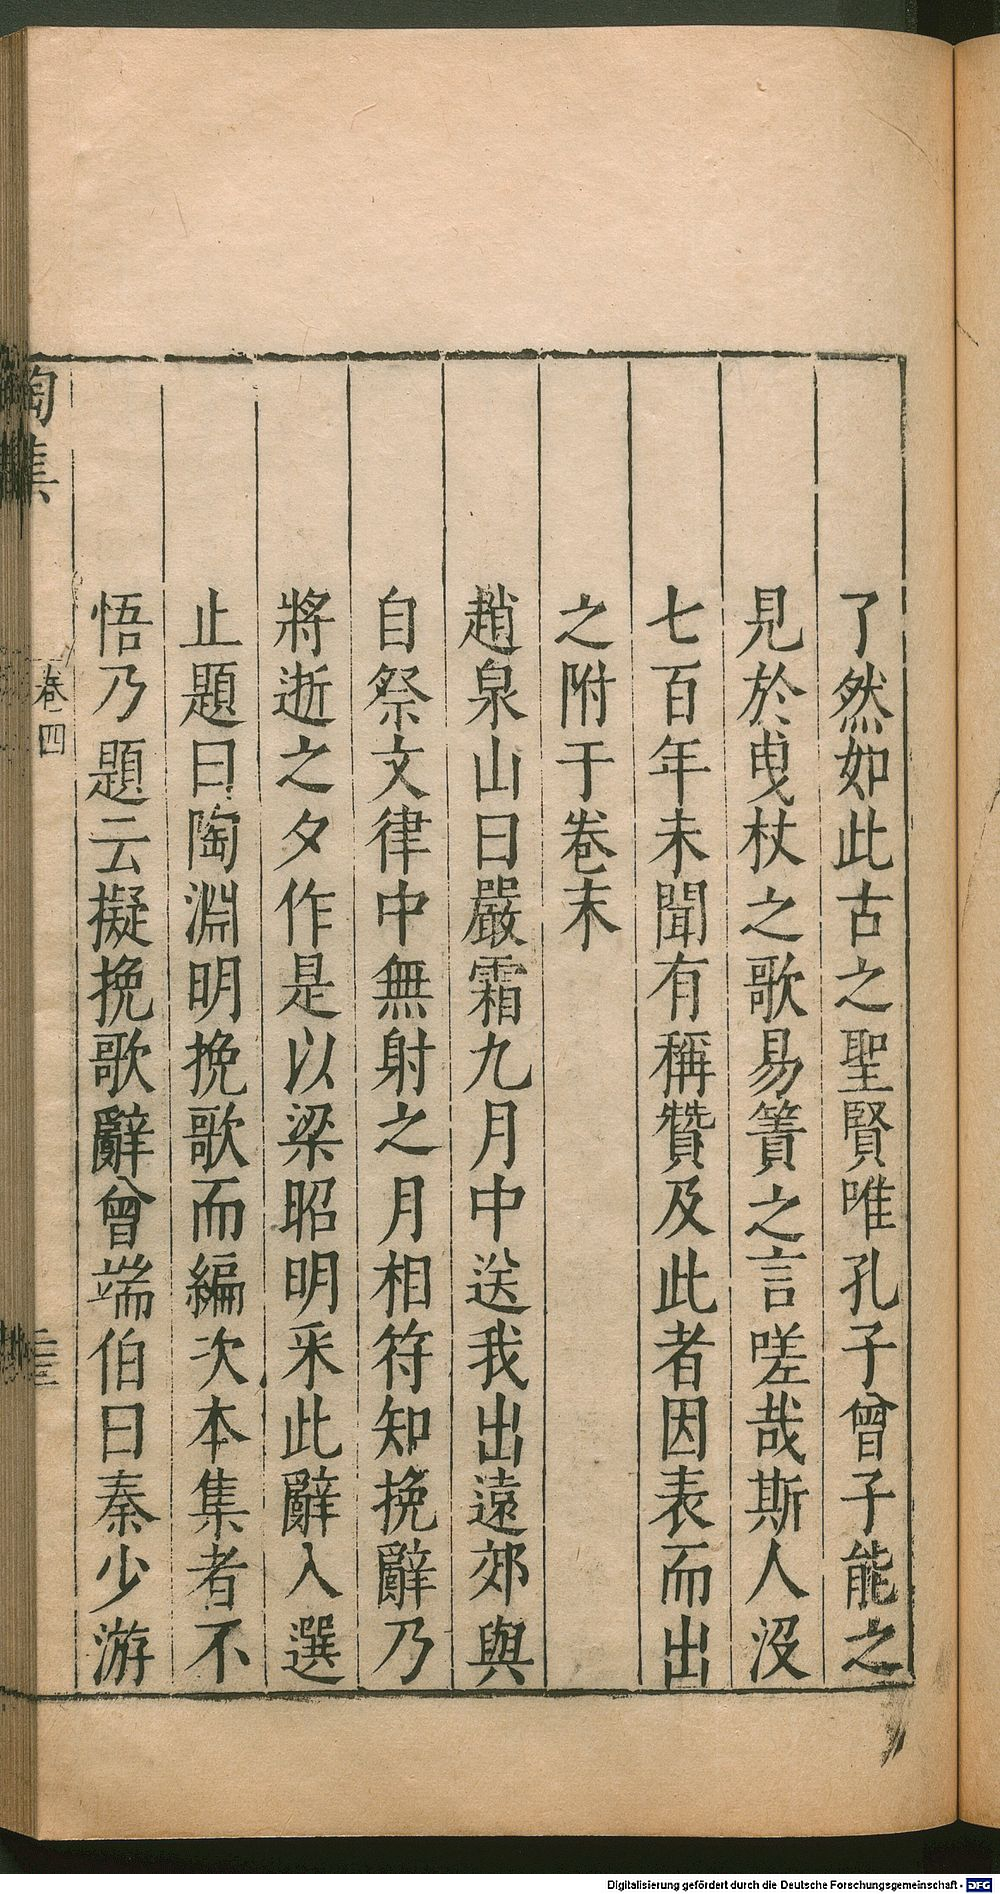 了然如此古之聖賢唯孔子曾子能之
見於曳杖之歌易簀之言嗟哉斯人沒
七百年未聞有稱贊及此者因表而出
之附于卷末
趙泉山曰嚴霜九月中送我出遠郊與
自祭文律中無射之月相符知挽辭乃
將逝之夕作是以梁昭明采此辭入選
止題曰陶淵明挽歌而編次本集者不
悟乃題云擬挽歌辭曾端伯曰秦少游
陶集
卷四
Digitalisierung gefördert durch die Deutsche Forschungsgemeinschaft - DFG